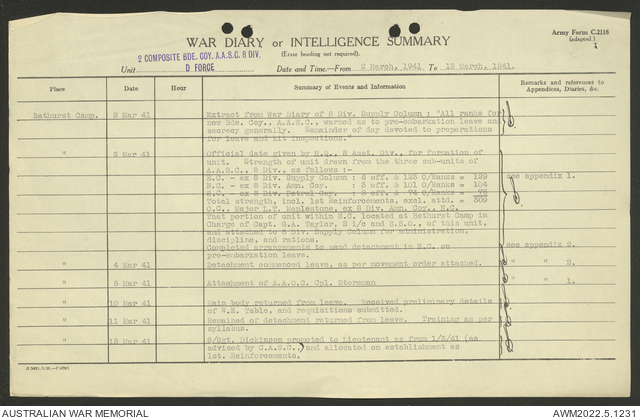 Army Form C.2118
(adapted.)
WAR DIARY or INTELLIGENCE SUMMARY
(Erase heading not required).
2 COMPOSITE BDE. COY. A.A.S.C. 8 DIV.
Unit D FORCE Date and Time.—From 2 March, 1941 To 13 March, 1941.
Place Date Hour Summary of Events and Information Remarks and references to
Appendices, Diaries, &c.
Bathurst Camp. 2 Mar 41 Extract from War Diary of 8 Div. Supply Column : "All ranks for
new Bde. Coy., A.A.S.C., warned as to pre-embarkation leave and
secrecy generally. Remainder of day devoted to preparations
for leave and kit inspections."
" 3 Mar 41 Official date given by H.Q., 8 Aust. Div., for formation of
unit. Strength of unit drawn from the three sub-units of
A.A.S.C., 8 Div., as follows :-
E.C. - ex 8 Div. Supply Column : 6 off. & 123 O/Ranks = 129 see appendix 1.
N.C. - ex 8 Div. Amn. Coy. : 3 off. & 101 O/Ranks = 104
S.C. - ex 8 Div. Petrol Coy. : 2 off. & 74 O/Ranks = 76
Total strength, incl. 1st Reinforcements, excl. attd. = 309
O.C., Major L.T. Maplestone, ex 8 Div. Amn. Coy., N.C.
That portion of unit within E.C. located at Bathurst Camp in
Charge of Capt. G.A. Taylor, 2 i/c and S.S.O., of this unit,
and attached to 8 Div. Supply Column for administration,
discipline, and rations.
Completed arrangements to send detachment in E.C. on see appendix 2.
pre-embarkation leave.
" 4 Mar 41 Detachment commenced leave, as per movement order attached. " " 2.
" 5 Mar 41 Attachment of A.A.O.C. Cpl. Storeman " " 1.
" 10 Mar 41 Main body returned from leave. Received preliminary details
of W.E. Table, and requisitions submitted.
" 11 Mar 41 Remained of detachment returned from leave. Training as per
syllabus.
" 13 Mar 41 S/Sgt. Dickinson promoted to Lieutenant as from 1/3/41 (as
advised by C.A.S.C.,) and allocated on establishment as
1st. Reinforcements.
AUSTRALIAN WAR MEMORIAL AWM2022.5.1231